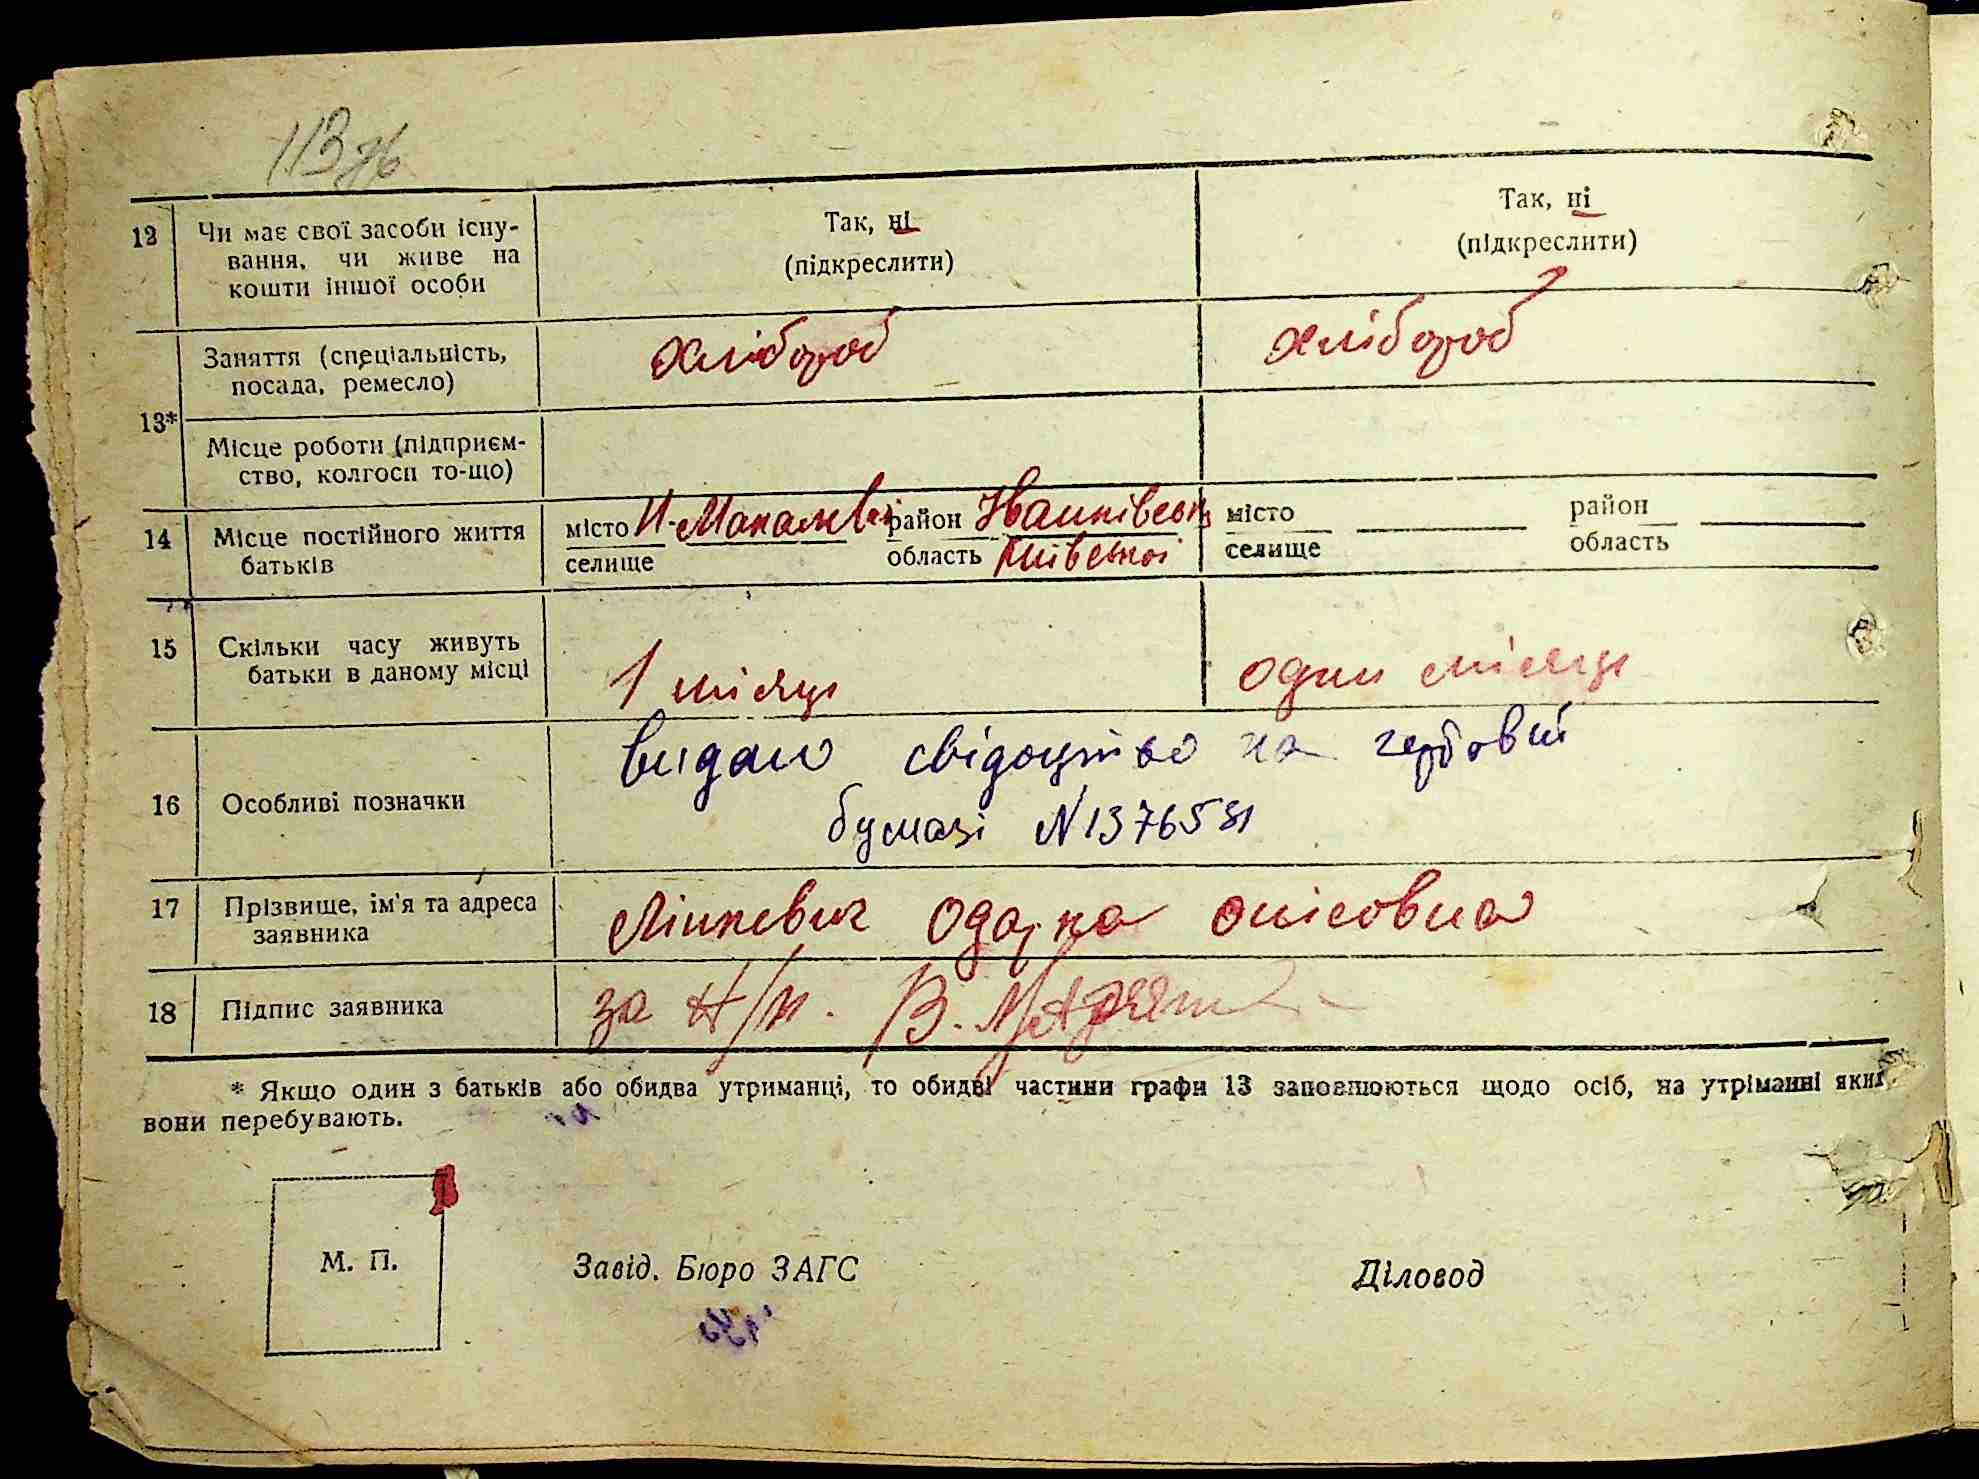 113 зв
12 Чи має свої засоби існу-
вання, чи живе на
кошти іншої особи
Так, ні
(підкреслити)
Так, ні
(підкреслити)
13*
Заняття (спеціальність,
посада, ремесло)
хлібороб
хлібороб
Місце роботи (підприєм-
ство, колгосп то-що)
14 Місце постійного життя
батьків
місто
селище
район Іванківськ
область Київської
місто
селище
район
область
15 Скільки часу живуть
батьки в даному місці
1 місяць
один місяць
16 Особливі позначки
видано свідоцтво на гербовій
бумазі N 1376581
17 Прізвище, ім'я та адреса
заявника
Лінкевич Одарка
18 Підпис заявника
за н/п. В.
* Якщо один з батьків або обидва утриманці, то обидві частини графи 13 заповнюються щодо осіб, на утріманні яких
вони перебувають.
М. П.
Завід. Бюро ЗАГС
Діловод